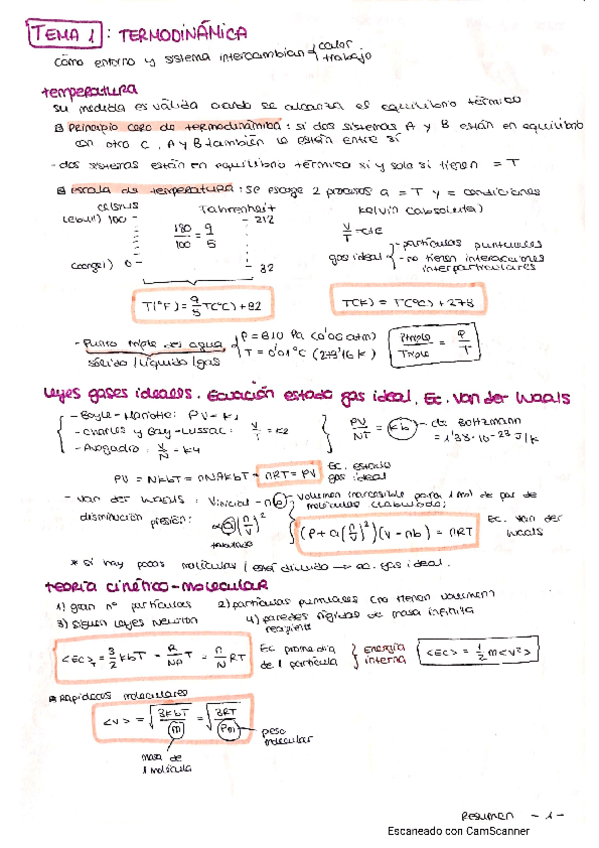 TEMA 1 : TERMODINÁMICA
cómo entorno y sistema intercambian { calor
trabajo
temperatura
su medida es válida cuando se alcanza el equilibrio térmico
Principio cero de termodinámica : si dos sistemas A y B están en equilibrio
con otro C, A y B también lo están entre sí
- dos sistemas están en equilibrio térmico si y solo si tienen = T
Escala de temperatura : se escoge 2 procesos a = T y = condiciones
Celsius Fahrenheit Kelvin (absoluta)
(ebull) 100 - - 212
180/100 = 9/5
V/T = cte
gas ideal { - partículas puntuales
- no tienen interacciones
interparticulares
(congel) 0 - - 32
T(°F) = 9/5 T(°C) + 32
T(K) = T(°C) + 273
- Punto triple del agua { P = 610 Pa (0'06 atm)
T = 0'01°C (273'16 K)
sólido / líquido / gas
Ptriple/Ttriple = P/T
Leyes gases ideales. Ecuación estado gas ideal, Ec. Van der Waals
- Boyle-Mariotte: PV = K1
- Charles y Gay-Lussac: V/T = K2
- Avogadro: V/N = K4
PV/NT = Kb - cte Boltzmann
= 1'38·10-23 J/K
PV = NKbT = nNAKbT = nRT = PV
Ec. estado
gas ideal
- Van der Waals : Vinicial - nb - volumen inaccesible para 1 mol de par de
moléculas
disminución presión: a(n/V)²
tabulado
(P + a(n/V)²)(V - nb) = nRT
Ec. Van der
Waals
* si hay pocas moléculas / está diluido → ec. gas ideal.
teoría cinético-molecular
1) gran nº partículas 2) partículas puntuales (no tienen volumen)
3) siguen leyes Newton 4) paredes rígidas de masa infinita
recipiente
<Ec>T = 3/2 KbT = R/NA T = n/N RT
Ec promedia
de 1 partícula
} energía
interna
<Ec> = 1/2 m<v²>
Rapideces moleculares
<v> = √3KbT/m = √3RT/Pm
peso
molecular
masa de
1 molécula
Resumen - 1 -
Escaneado con CamScanner